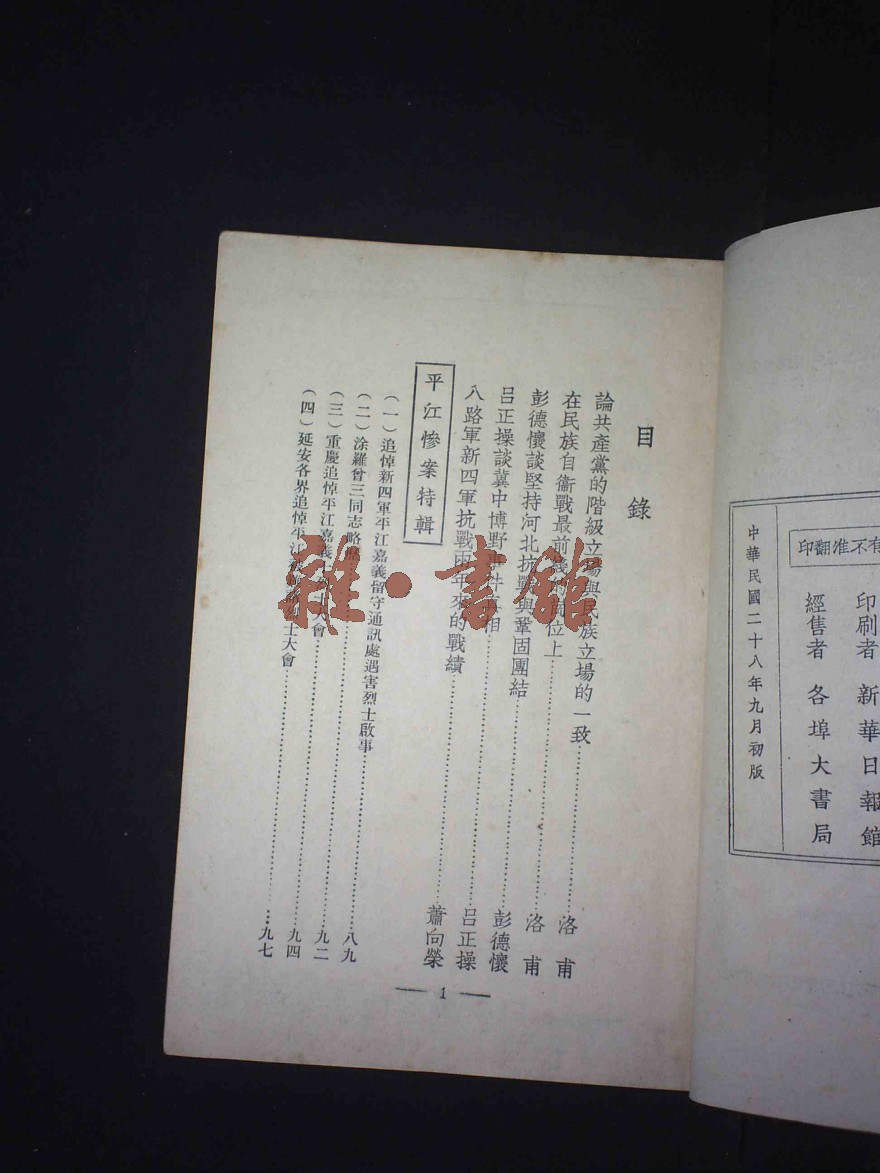 有不准翻印
印刷者 新華日報館
經售者 各埠大書局
中華民國二十八年九月初版
目錄
論共產黨的階級立場與民族立場的一致 洛甫
在民族自衞戰最前線的崗位上 洛甫
彭德懷談堅持河北抗戰與鞏固團結 彭德懷
呂正操談冀中博野事件真相 呂正操
八路軍新四軍抗戰兩年來的戰績 蕭向榮
平江慘案特輯
(一)追悼新四軍平江嘉義留守通訊處遇害烈士啟事 八九
(二)涂羅曾三同志略 九二
(三)重慶追悼平江嘉義 大會 九四
(四)延安各界追悼平江 烈士大會 九七
— 1 —
雜·書館